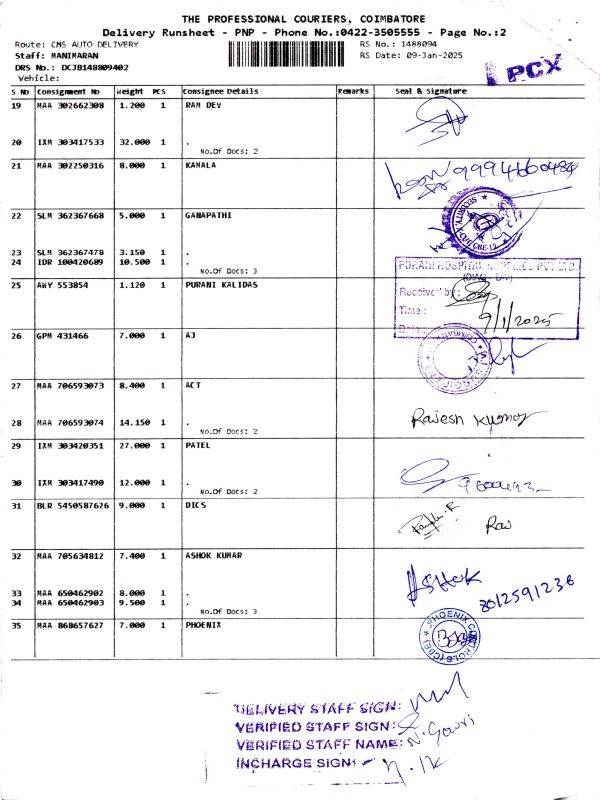 THE PROFESSIONAL COURIERS, COIMBATORE
Delivery Runsheet - PNP - Phone No.:0422-3505555 - Page No.:2
Route: CMS AUTO DELIVERY RS No.: 1488094
Staff: MANIMARAN RS Date: 09-Jan-2025
DRS No.: DCJB148809402
Vehicle:
PCX
S No Consignment No Weight PCS Consignee Details Remarks Seal & Signature
19 MAA 302662308 1.200 1 RAM DEV
20 IXM 303417533 32.000 1 .
No.Of Docs: 2
21 MAA 302250316 8.000 1 KAMALA
9994660484
22 SLM 362367668 5.000 1 GANAPATHI
23 SLM 362367478 3.150 1 .
24 IDR 100420689 10.500 1 .
No.Of Docs: 3
25 AWY 553854 1.120 1 PURANI KALIDAS
Received by:
Time:
Date:
9/1/2025
26 GPM 431466 7.000 1 AJ
27 MAA 706593073 8.400 1 ACT
28 MAA 706593074 14.150 1 .
No.Of Docs: 2
Rajesh Kumar
29 IXM 303420351 27.000 1 PATEL
30 IXM 303417490 12.000 1 .
No.Of Docs: 2
31 BLR 5450587626 9.000 1 DICS
32 MAA 705634812 7.400 1 ASHOK KUMAR
Ashok
8012591236
33 MAA 650462902 8.000 1 .
34 MAA 650462903 9.500 1 .
No.Of Docs: 3
35 MAA 868657627 7.000 1 PHOENIX
PHOENIX CONTROLS (CBE)
DELIVERY STAFF SIGN:
VERIFIED STAFF SIGN:
VERIFIED STAFF NAME: N. Gowri
INCHARGE SIGN: